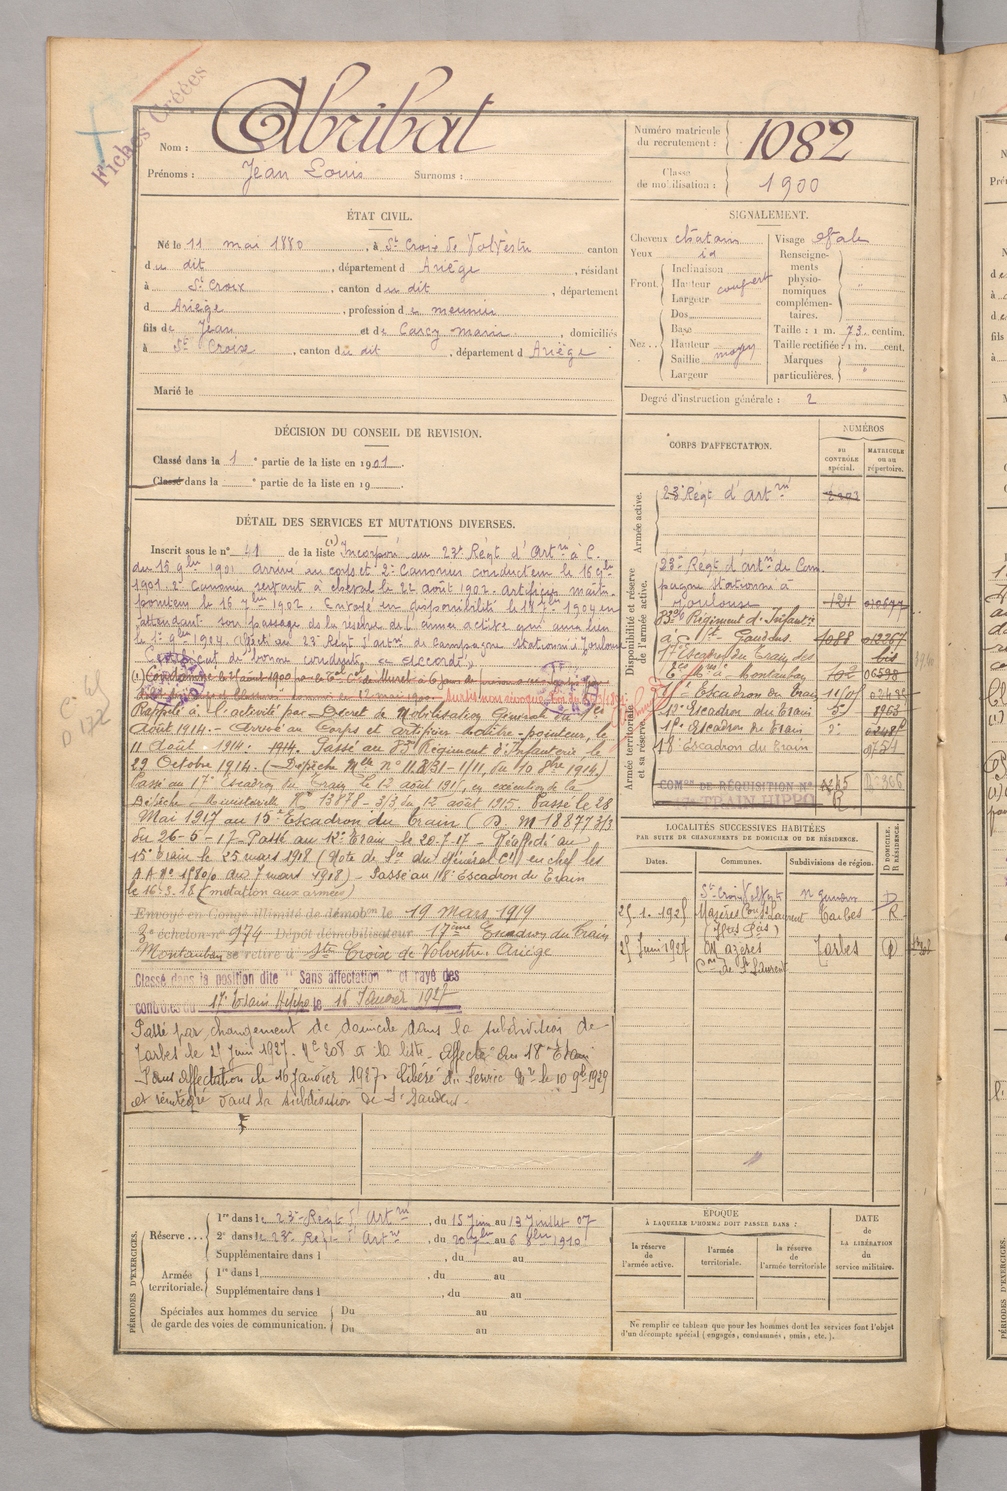 Fiches Créées
Nom : Abribat
Prénoms : Jean Louis Surnoms :
Numéro matricule du recrutement : 1082
Classe de mobilisation : 1900
ÉTAT CIVIL.
Né le 11 mai 1880, à St Croix de Volvestre canton
du dit, département d Ariège, résidant
à St Croix, canton du dit, département
d Ariège, profession de meunier
fils de Jean et de Carcy Marie, domiciliés
à St Croix, canton du dit, département d Ariège
Marié le
SIGNALEMENT.
Cheveux chatain
Yeux id
Front. Inclinaison
Hauteur couvert
Largeur
Nez Dos
Base
Hauteur
Saillie moyen
Largeur
Visage ovale
Renseignements physionomiques complémentaires.
Taille : 1 m. 73 centim.
Taille rectifiée : 1 m. cent.
Marques particulières.
Degré d'instruction générale : 2
DÉCISION DU CONSEIL DE REVISION.
Classé dans la 1e partie de la liste en 1901.
Classé dans la e partie de la liste en 19
DÉTAIL DES SERVICES ET MUTATIONS DIVERSES.
Inscrit sous le n° 41 de la liste (1) Incorporé au 23e Régt d'Artie à C.
du 15 9bre 1901 arrivé au corps et 2e Canonnier conducteur le 16 9bre
1901. 2e Canonnier servant à cheval le 22 août 1902. Artificier maître
pointeur le 16 7bre 1902. Envoyé en disponibilité le 18 7bre 1904 en
attendant son passage de la réserve de l'armée active qui aura lieu
le 1er 9bre 1904. Affecté au 23e Régt d'artie de campagne stationné à Toulouse
Certificat de bonne conduite, "accordé",
Rappelé à l'activité par Décret de Mobilisation Générale du 1er
Août 1914. - Arrivé au Corps et artificier maître-pointeur, le
11 Août 1914. 1914. Passé au 83e Régiment d'Infanterie le
29 Octobre 1914.
Passé au 17e Escadron du Train le 12 août 1915, en exécution de la
Dépêche Ministérielle N° 13878-3/3 du 12 août 1915. Passé le 28
Mai 1917 au 15e Escadron du Train (D. M 18877 3/3
du 26-5-17 - Passé au 12e Train le 20-7-17 - Réaffecté au
15e Train le 25 mars 1918 (Note de du Général Ct en chef les
A.A. N° 1580/0 du 7 mars 1918) - Passé au 18e Escadron du Train
le 16-3-18 (mutation aux armées)
Envoyé en Congé illimité de démobon le 19 mars 1919
3e échelon n° 974 Dépôt démobilisateur 17ème Escadron du Train
Montauban se retire à Ste Croix de Volvestre. Ariège
Classé dans la position dite "Sans affectation" et rayé des
contrôles du 17e Train Hippo le 16 Janvier 1927
Passé par changement de domicile dans la subdivision de
Tarbes le 25 Juin 1927. N° 208 à la liste - affecté au 18e Train
Sans affectation le 16 Janvier 1927. Libéré du Service Mre le 10 9bre 1929
et réintégré dans la subdivision de St Gaudens.
CORPS D'AFFECTATION.
NUMÉROS
au CONTRÔLE spécial.
MATRICULE ou au répertoire.
Armée active.
23e Régt d'Artie
Disponibilité et réserve de l'armée active.
23e Régt d'artie de Cam-
pagne Stationné à
Toulouse 121
83e Régiment d'Infanterie
à St Gaudens 1088 012267
17e Escadron du Train des
à Montauban 102 06598
Armée territoriale et sa réserve.
12e Escadron du Train
18e Escadron du Train 9754
COMon DE RÉQUISITION N°
TRAIN HIPPO
LOCALITÉS SUCCESSIVES HABITÉES
PAR SUITE DE CHANGEMENTS DE DOMICILE OU DE RÉSIDENCE.
Dates. Communes. Subdivisions de région. D DOMICILE. R RÉSIDENCE.
St Croix Volvestre St Gaudens D
25.1.1925 Mazères Con St Laurent Tarbes R
(Htes Pés)
25 Juin 1927 Mazères Tarbes D
Cne de St Laurent
PÉRIODES D'EXERCICES.
Réserve... 1re dans le 23e Regt d'Artie, du 15 Juin au 13 Juillet 07
2e dans le 23e Regt d'Artie, du 20 7bre au 6 8bre 1910
Supplémentaire dans l , du au
Armée territoriale. 1re dans l , du au
Supplémentaire dans l , du au
Spéciales aux hommes du service de garde des voies de communication. Du au
Du au
ÉPOQUE
À LAQUELLE L'HOMME DOIT PASSER DANS :
la réserve de l'armée active. l'armée territoriale. la réserve de l'armée territoriale
DATE DE LA LIBÉRATION du service militaire.
Ne remplir ce tableau que pour les hommes dont les services font l'objet
d'un décompte spécial (engagés, condamnés, omis, etc.).